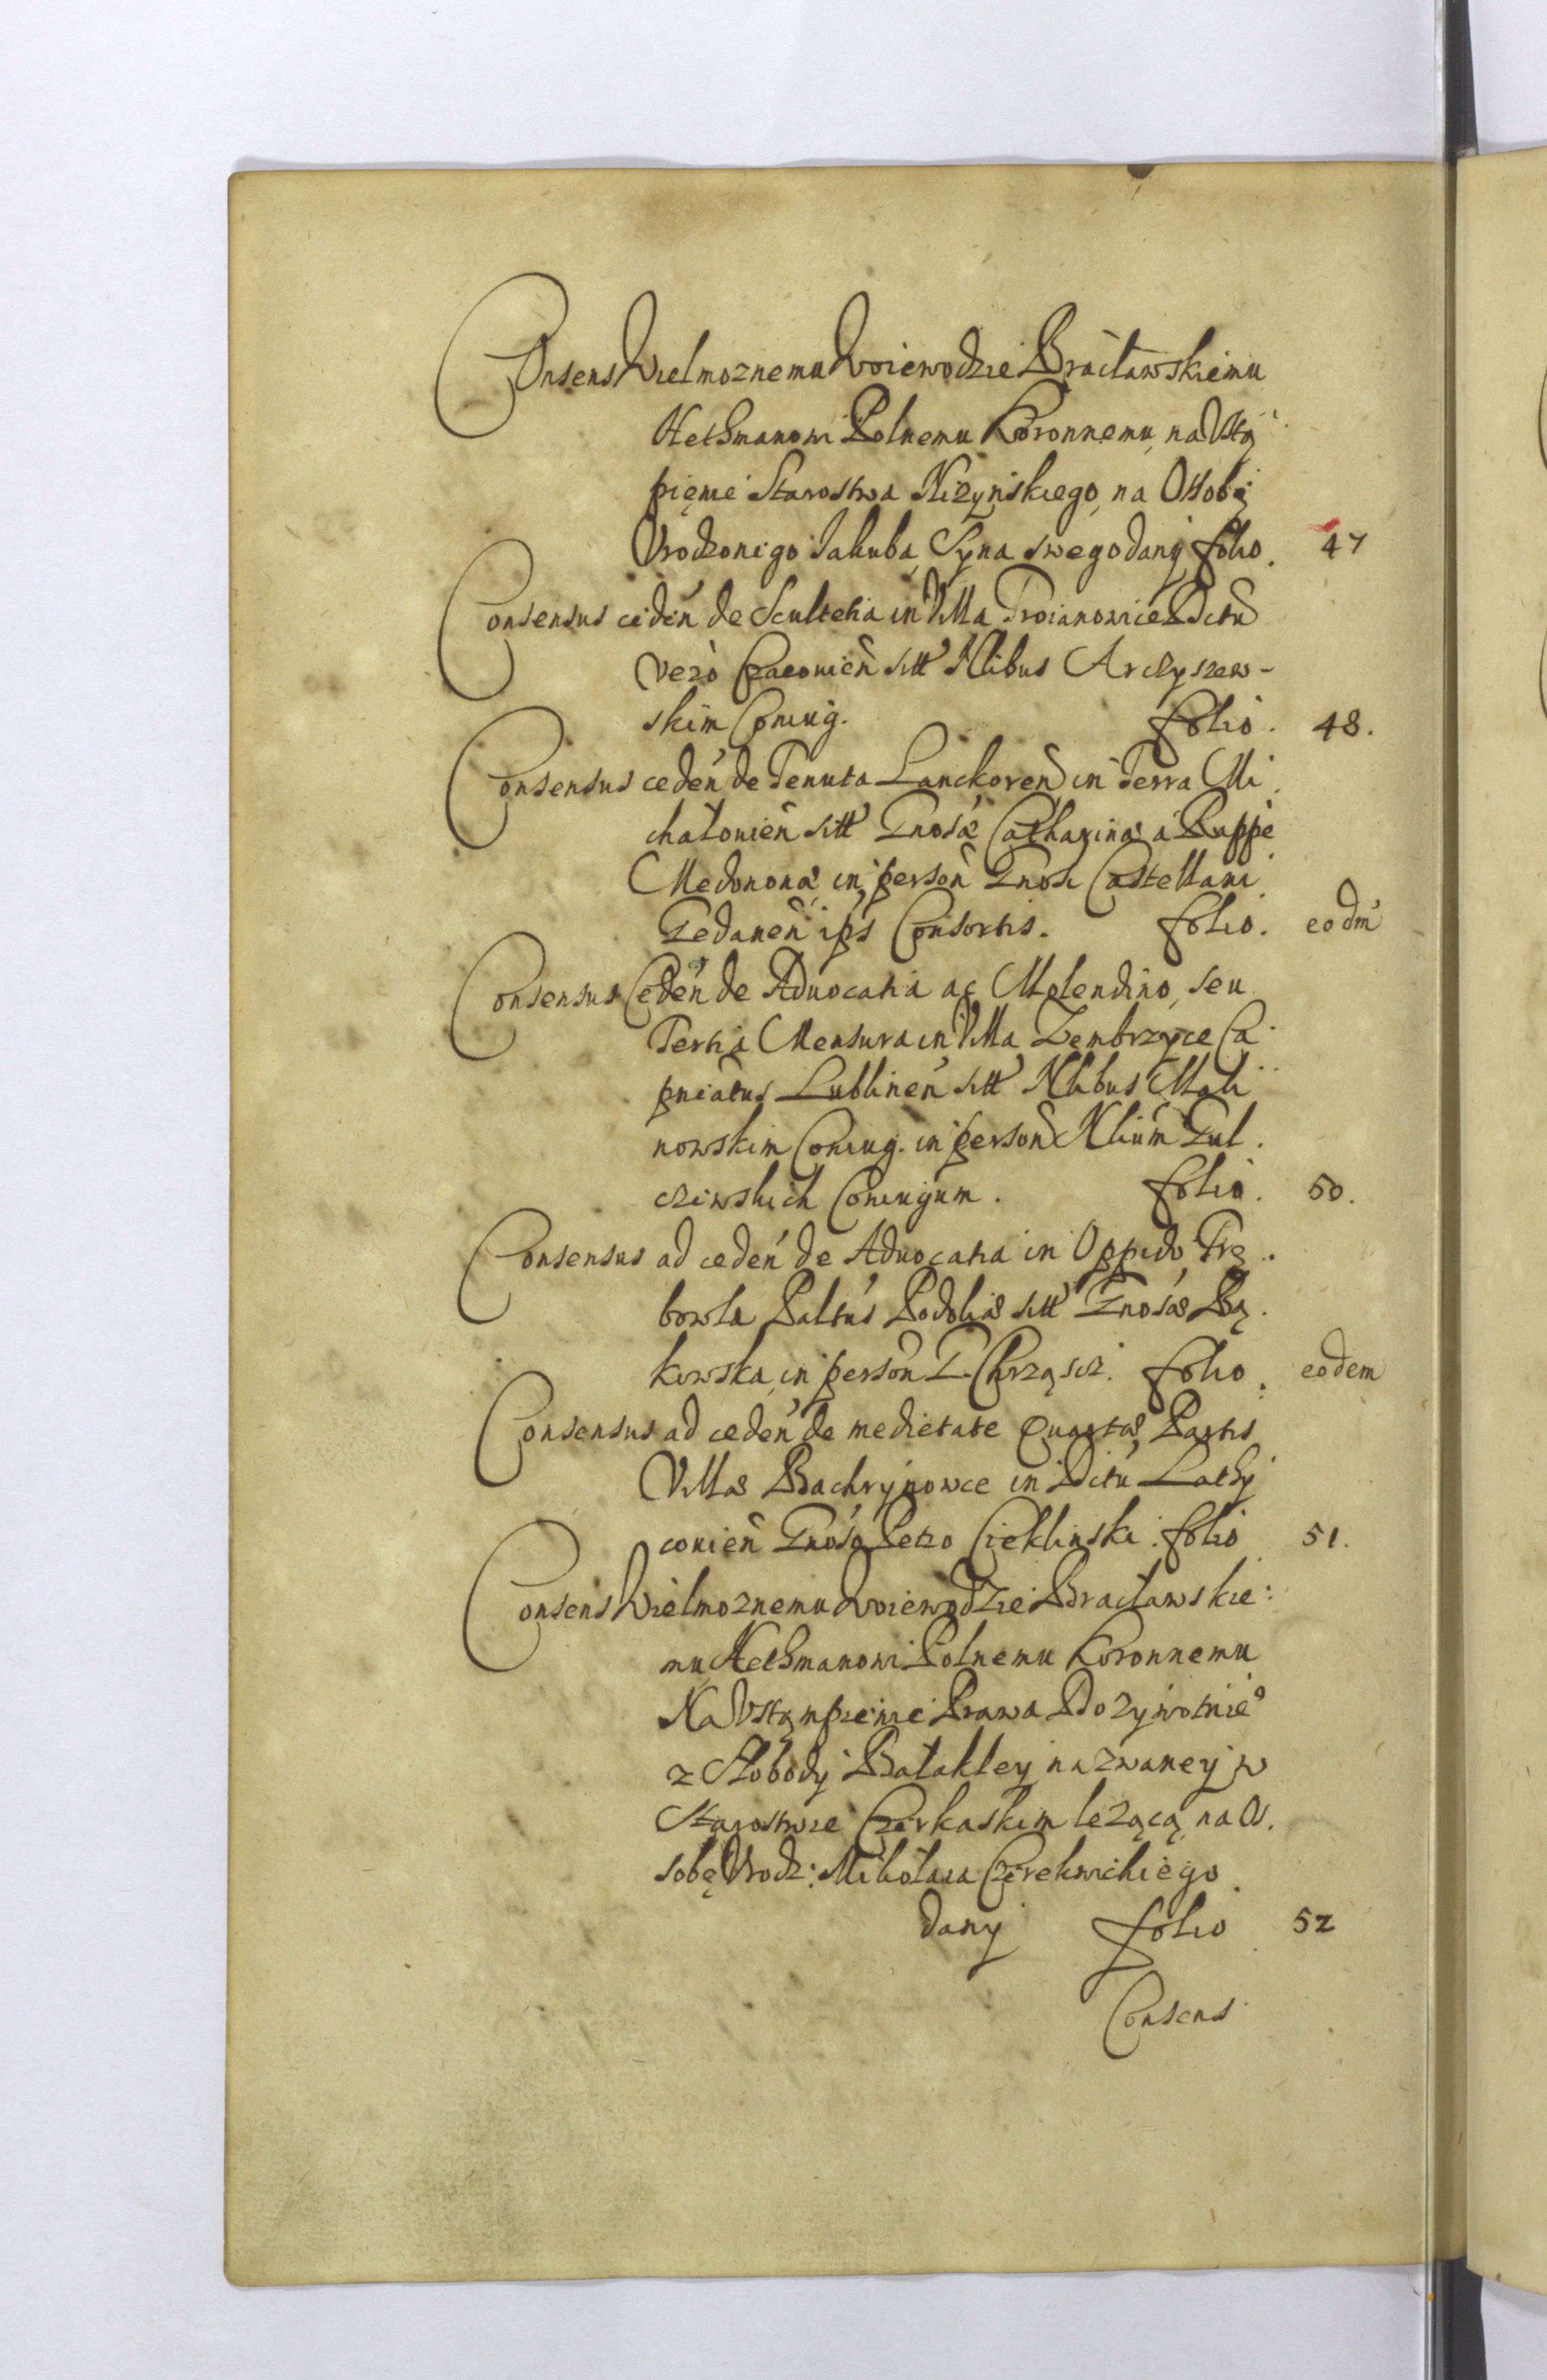 Consens Wielmoznemu Woiewodzie Bracławskiemu
Hethmanowi Polnemu Koronnemu, na Ustą
pięnie Starostwa Niżyńskiego, na Ossobę
Urodzonego Jakuba, Syna swego dany folio. 47
Consensus cedeñ de Scultetia in Villa Troianowice Dictũ
vero Cracovieñ sitt Nlibus Arciszew-
skim Coniug. folio. 48.
Consensus cedeñ de Tenuta Lanckoreñ in Terra Mi
chałovieñ sitt Gnosæ Catharinæ a Ruppe
Medononæ in persoñ Gnosi Castellani
Gedaneñ ips Consortis. folio. eodm
Consensus Cedeñ de Advocatia ac Molendino, seu
Tertia Mensura in Villa Zembrzyce Ca
pneatus Lublineñ sitt Nlibus Mali
nowskim Coniug. in persoñ Nlium Gul.
czewskich Coniugum. folio. 50.
Consensus ad cedeñ de Advocatia in Oppido Tre.
bowla Paltus Podoliæ sitt Gnosæ Bą.
kowska, in persoñ G. Chrząsz. folio. eodem
Consensus ad cedeñ de medietate Quartæ Partis
Villæ Bachrynowce in Dictũ Lathy
covieñ Gnoso Petro Cieklinski. folio 51.
Consens Wielmoznemu Woiewodzie Bracławskie:
mu, Hethmanowi Polnemu Koronnemu
Na Ustąmpienie Prawa Dozywotnie°
z Słobody Bałakłey nazwaney w
Starostwie Czerkaskim leżącą, na Os.
sobę Urodz: Mikołaia Czerekwickiego
dany folio 52
Consens